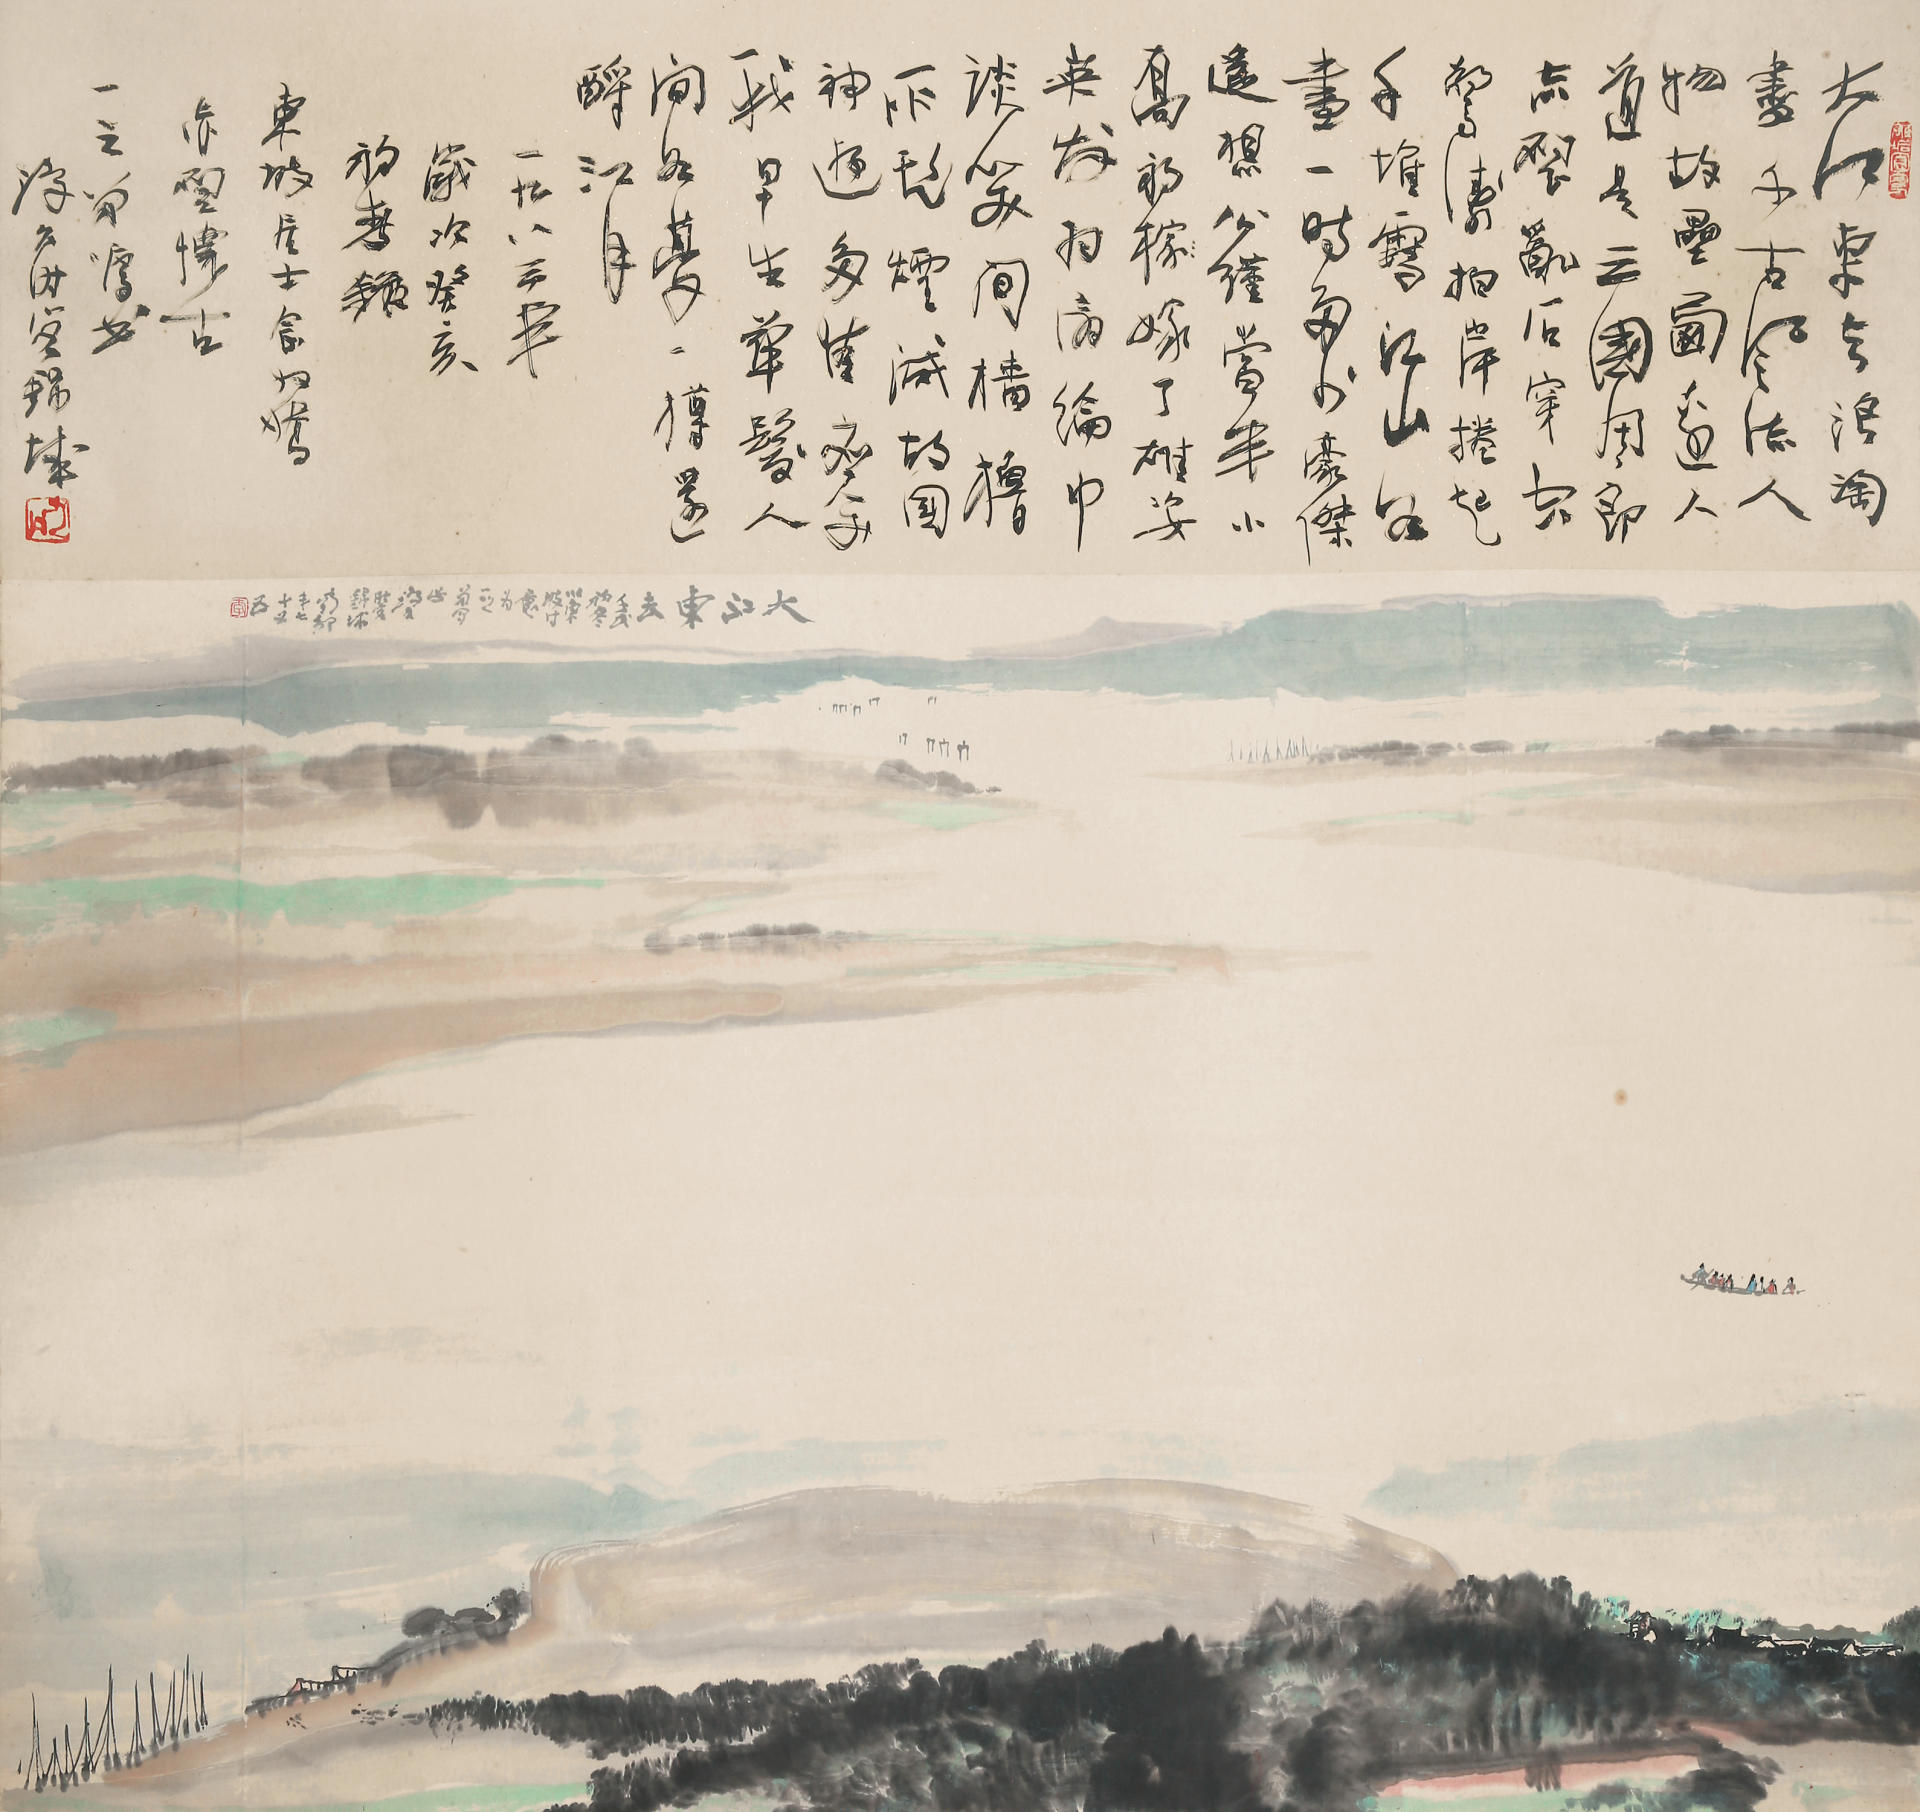 大江東去浪淘
盡千古風流人
物故壘西邊人
道是三國周郎
赤壁亂石穿空
驚濤拍岸捲起
千堆雪江山如
畫一時多少豪傑
遙想公瑾當年小
喬初稼嫁了雄姿
英發羽扇綸巾
談笑間檣櫓
灰飛煙滅故國
神遊多情應笑
我早生華髮人
間如夢一樽還
酹江月
一九八三年
歲次癸亥
初春錄
東坡居士念奴嬌
赤壁懷古
一之囑書
錦城
大江東去
壬戌
初冬
以東
坡詞
意
為
一之
錦城
年七
十五